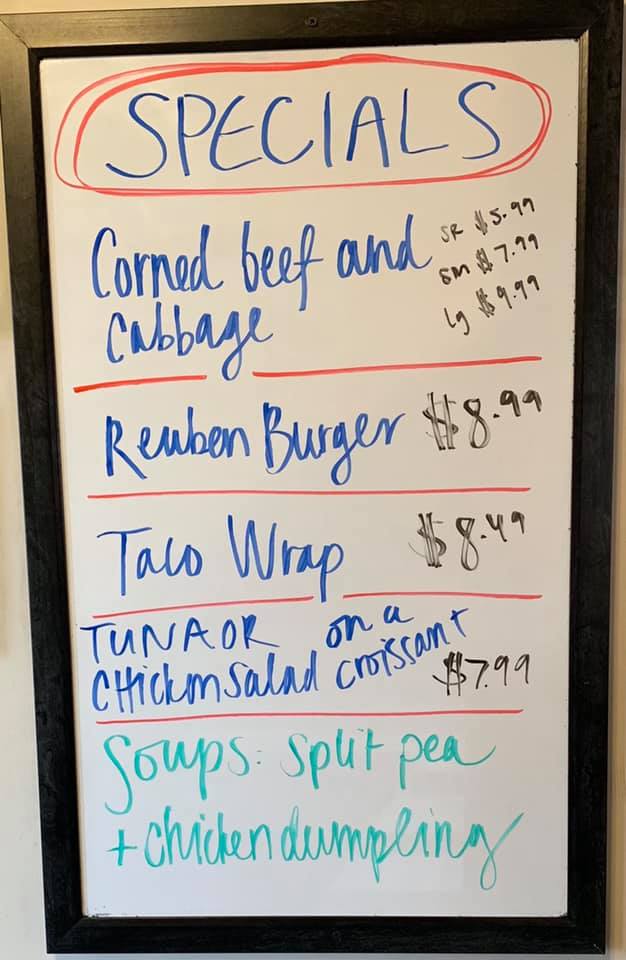 SPECIALS
Corned beef and
cabbage
SR $5.99
sm $7.99
lg $9.99
Reuben Burger $8.99
Taco Wrap $8.49
TUNA OR on a
CHicken Salad croissant $7.99
Soups: split pea
+ chicken dumpling